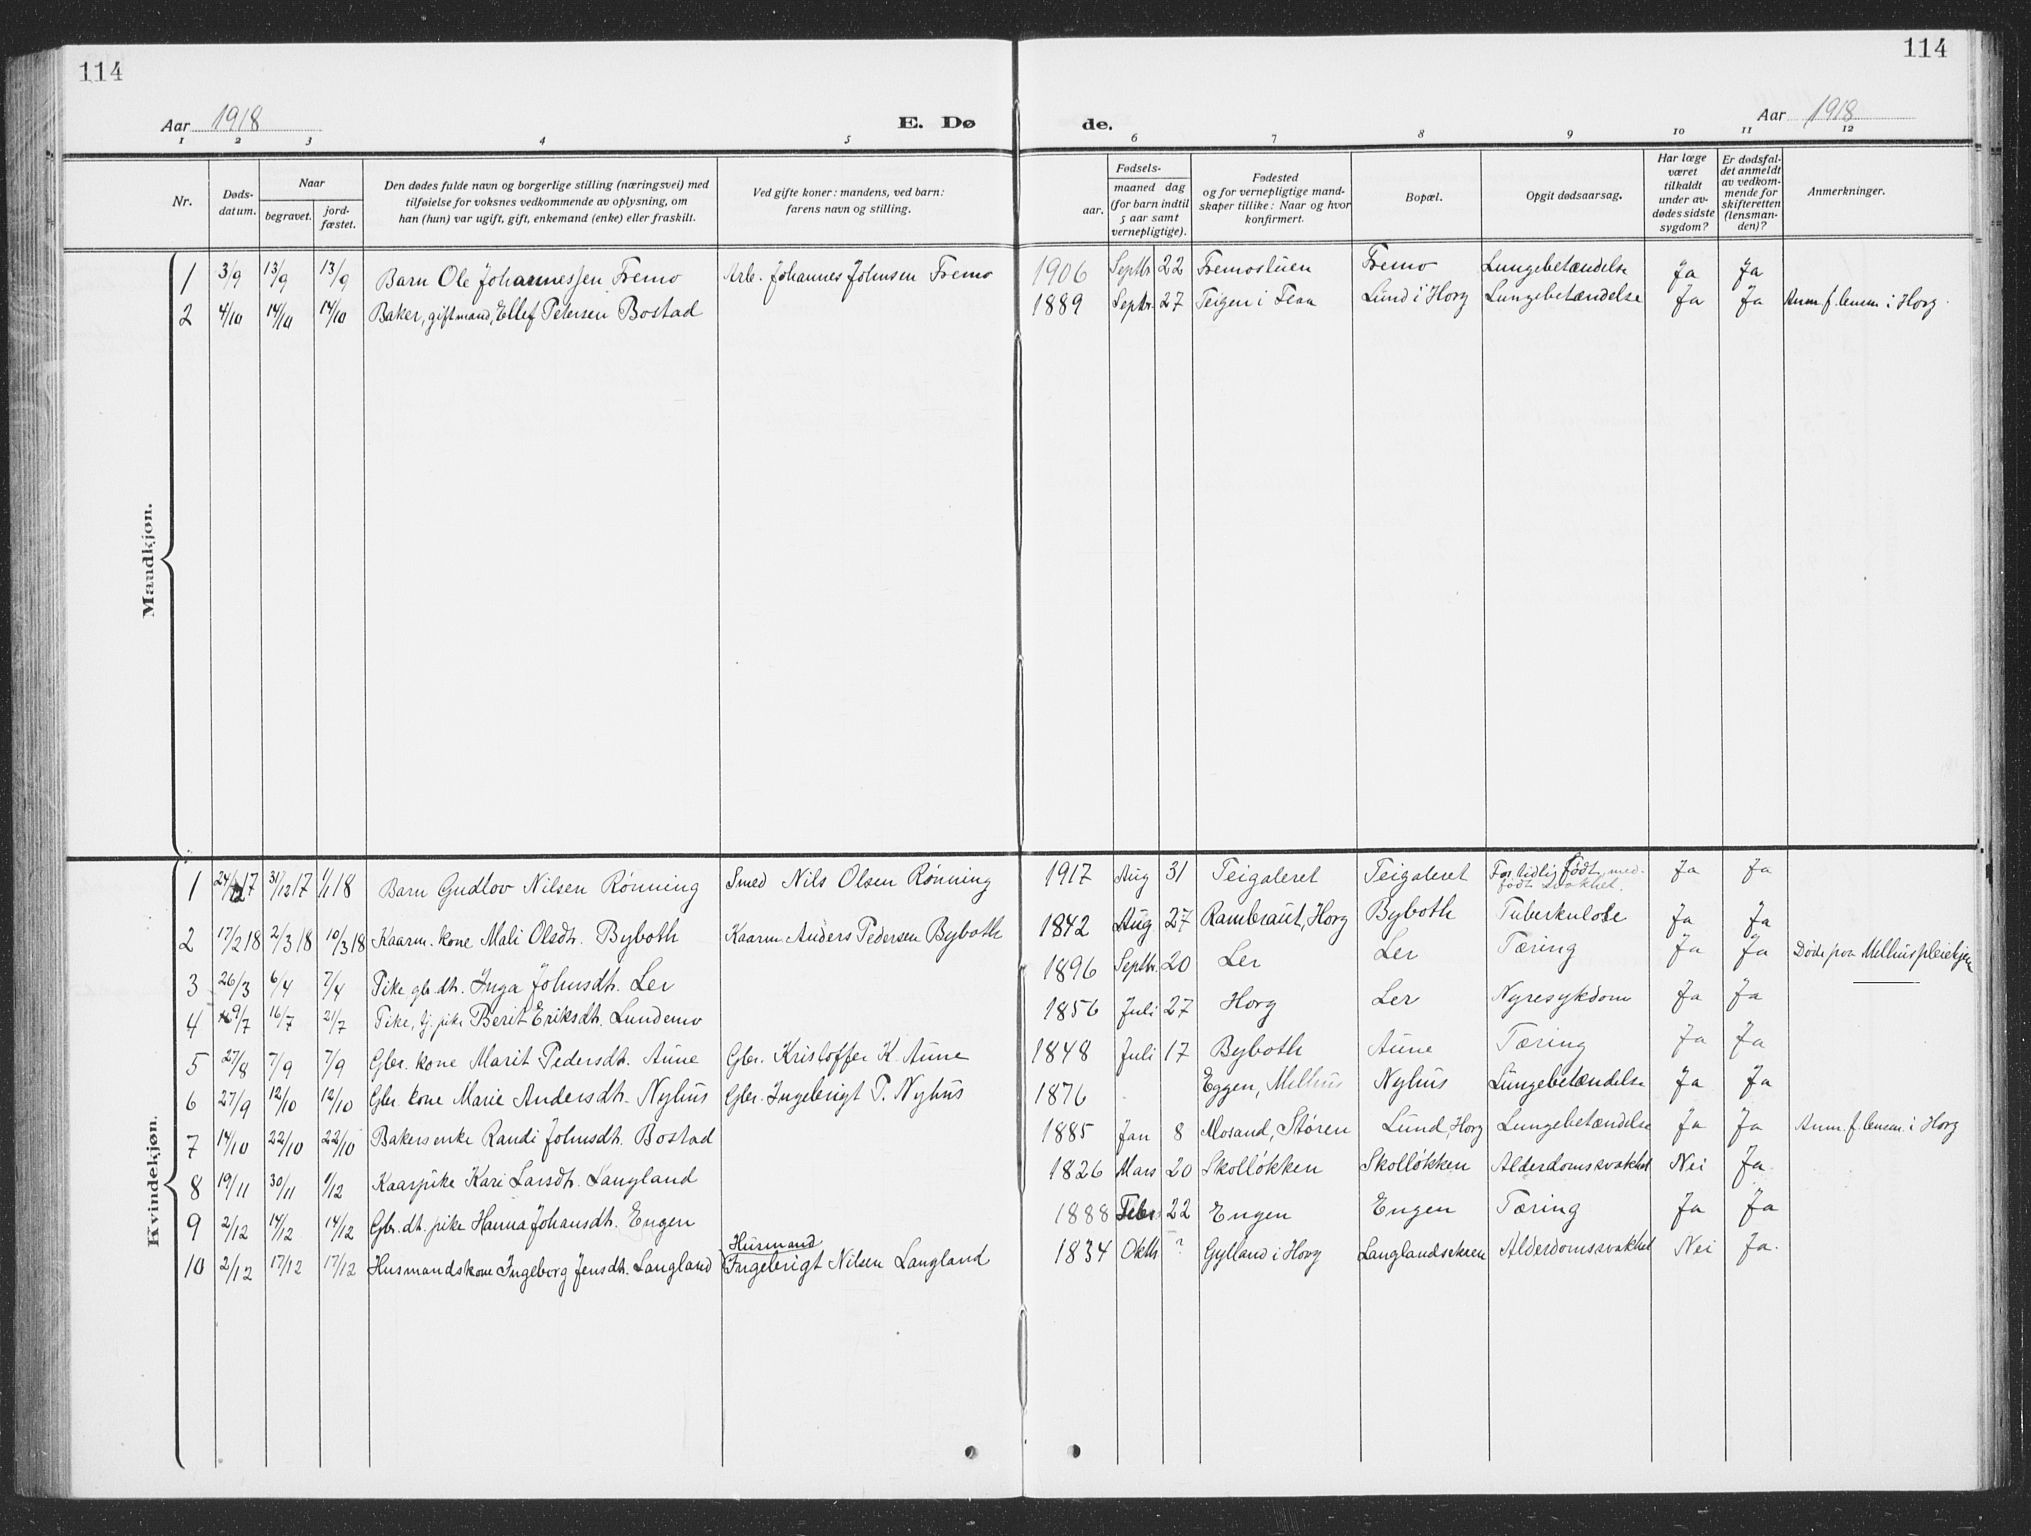 114
114
Aar 1918
E. Dø
de.
Aar 1918
1 2 3 4 5 6 7 8 9 10 11 12
Nr.
Døds-
datum.
Naar
begravet.
jord-
fæstet.
Den dødes fulde navn og borgerlige stilling (næringsvei) med
tilføielse for voksnes vedkommende av oplysning, om
han (hun) var ugift, gift, enkemand (enke) eller fraskilt.
Ved gifte koner: mandens, ved barn:
farens navn og stilling.
Fødsels-
aar.
maaned dag
(for barn indtil
5 aar samt
vernepligtige).
Fødested
og for vernepligtige mand-
skaper tillike: Naar og hvor
konfirmert.
Bopæl.
Opgit dødsaarsag.
Har læge
været
tilkaldt
under av-
dødes sidste
sygdom?
Er dødsfal-
det anmeldt
av vedkom-
mende for
skifteretten
(lensman-
den)?
Anmerkninger.
Mandkjøn.
1 3/9 13/9 13/9 Barn Ole Johannessen Fremo Arb. Johannes Johnsen Fremo 1906 Septbr 22 Fremostuen Fremo Lungebetændelse Ja Ja
2 4/10 14/10 14/10 Baker, gift mand, Ellef Petersen Bostad 1889 Septbr. 27 Teigen i Flaa Lund i Horg Lungebetændelse Ja Ja Anm. f. lensm. i Horg.
Kvindekjøn.
1 24/12 17 31/12 17 1/1 18 Barn Gudlov Nilsen Rönning Smed Nils Olsen Rönning 1917 Aug 31 Teigaleret Teigaleret For tidlig født, med-
født svakhet. Ja Ja
2 17/2 18 2/3 18 10/3 18 Kaarm. kone Mali Olsdtr. Byboth Kaarm. Anders Pedersen Byboth 1842 Aug 27 Rambraut, Horg Byboth Tuberkulose Ja Ja
3 26/3 6/4 7/4 Pike gbr. dtr. Inga Johnsdtr. Ler 1896 Septbr. 20 Ler Ler Tæring Ja Ja Døde paa Melhus pleiehjem
4 9/7 16/7 21/7 Pike, tj. pike Berit Eriksdtr. Lundemo 1856 Juli 27 Horg Ler Nyresykdom Ja Ja
5 27/8 7/9 7/9 Gbr. kone Marit Pedersdtr. Aune Gbr. Kristoffer K. Aune 1848 Juli 17 Byboth Aune Tæring Ja Ja
6 27/9 12/10 12/10 Gbr. kone Marie Andersdtr. Nyhus Gbr. Ingebrigt P. Nyhus 1876 Eggen, Melhus Nyhus Lungebetændelse Ja Ja
7 14/10 22/10 22/10 Bakersenke Randi Johnsdtr. Bostad 1885 Jan 8 Mosand, Støren Lund, Horg Lungebetændelse Ja Ja Anm. f. lensm. i Horg
8 19/11 30/11 1/12 Kaarpike Kari Larsdtr. Langland 1826 Mars 20 Skolløkken Skolløkken Alderdomssvakhet Nei Ja
9 2/12 14/12 14/12 Gbr. dt. pike Hanna Johansdtr. Engen 1888 Febr 22 Engen Engen Tæring Ja Ja
Husmand
10 2/12 17/12 17/12 Husmandskone Ingeborg Jensdtr. Langland Ingebrigt Nilsen Langland 1834 Oktb ? Gylland i Horg Alderdomssvakhet Nei Ja.